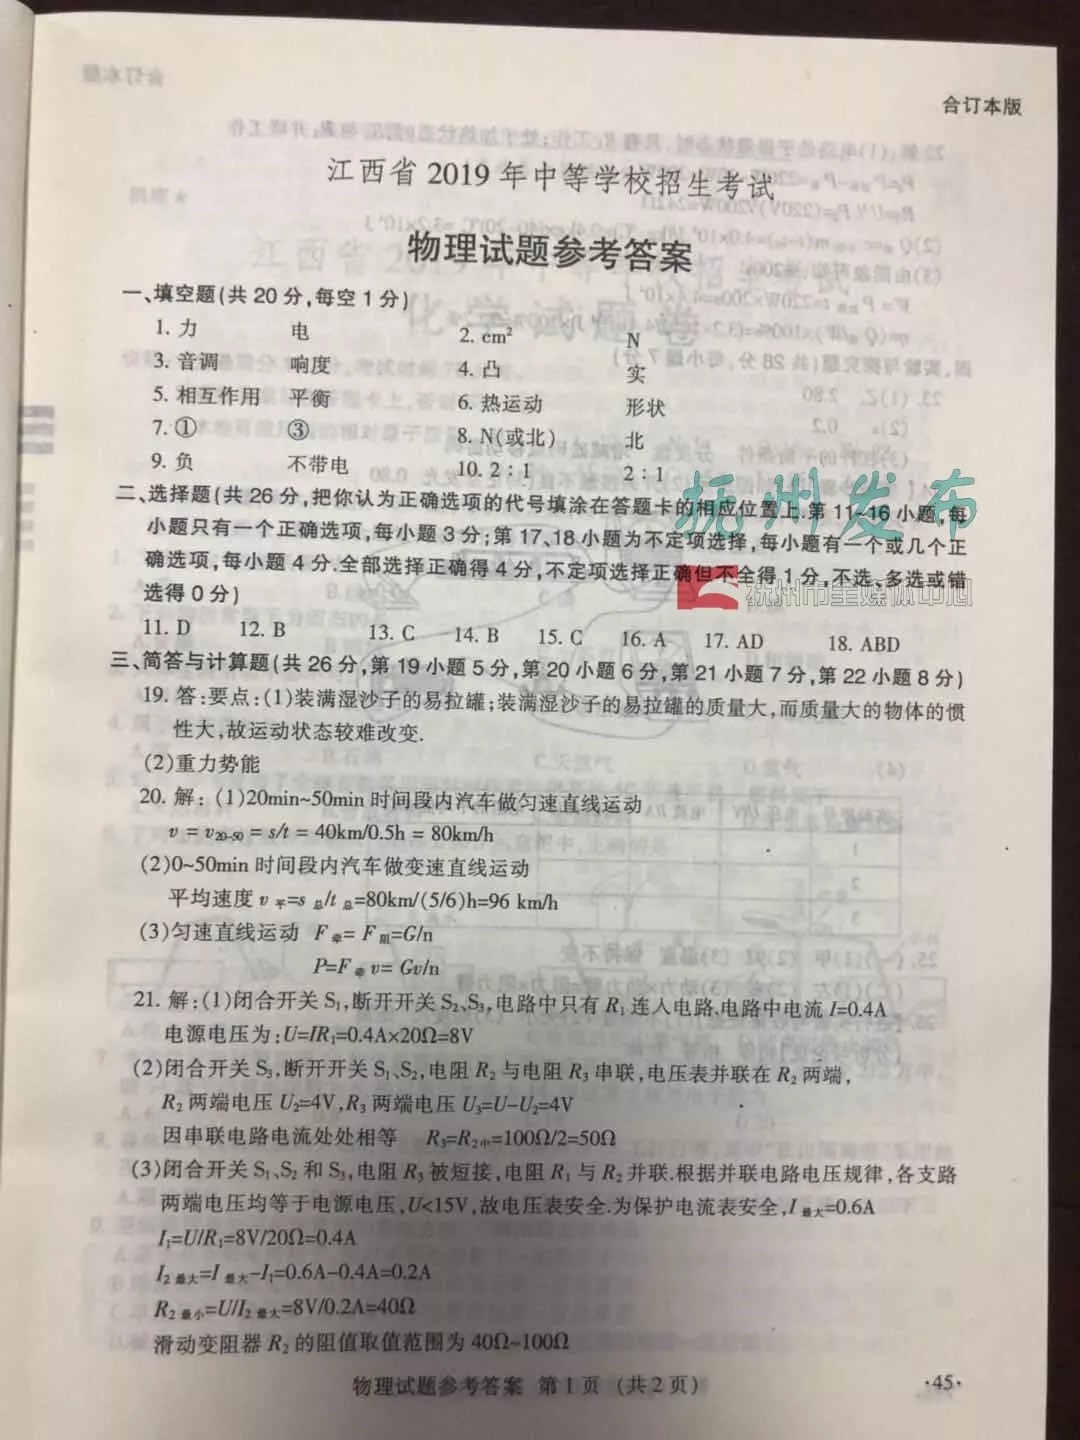 合订本版
江西省 2019 年中等学校招生考试
物理试题参考答案
一、填空题(共 20 分,每空 1 分)
1. 力 电 2. cm² N
3. 音调 响度 4. 凸 实
5. 相互作用 平衡 6. 热运动 形状
7. ① ③ 8. N(或北) 北
9. 负 不带电 10. 2 : 1 2 : 1
二、选择题(共 26 分,把你认为正确选项的代号填涂在答题卡的相应位置上.第 11~16 小题,每
小题只有一个正确选项,每小题 3 分;第 17、18 小题为不定项选择,每小题有一个或几个正
确选项,每小题 4 分.全部选择正确得 4 分,不定项选择正确但不全得 1 分,不选、多选或错
选得 0 分)
抚州发布
抚州市全媒体中心
11. D 12. B 13. C 14. B 15. C 16. A 17. AD 18. ABD
三、简答与计算题(共 26 分,第 19 小题 5 分,第 20 小题 6 分,第 21 小题 7 分,第 22 小题 8 分)
19. 答:要点:(1)装满湿沙子的易拉罐;装满湿沙子的易拉罐的质量大,而质量大的物体的惯
性大,故运动状态较难改变.
(2)重力势能
20. 解: (1)20min~50min 时间段内汽车做匀速直线运动
v = v20~50 = s/t = 40km/0.5h = 80km/h
(2)0~50min 时间段内汽车做变速直线运动
平均速度 v平=s总/t总=80km/(5/6)h=96 km/h
(3)匀速直线运动 F牵= F阻=G/n
P=F牵v= Gv/n
21. 解:(1)闭合开关 S1,断开开关 S2、S3,电路中只有 R1 连入电路.电路中电流 I=0.4A
电源电压为:U=IR1=0.4A×20Ω=8V
(2)闭合开关 S3,断开开关 S1、S2,电阻 R2 与电阻 R3 串联,电压表并联在 R2 两端,
R2 两端电压 U2=4V,R3 两端电压 U3=U-U2=4V
因串联电路电流处处相等 R3=R2中=100Ω/2=50Ω
(3)闭合开关 S1、S2 和 S3,电阻 R3 被短接,电阻 R1 与 R2 并联.根据并联电路电压规律,各支路
两端电压均等于电源电压,U<15V,故电压表安全.为保护电流表安全,I最大=0.6A
I1=U/R1=8V/20Ω=0.4A
I2最大=I最大-I1=0.6A-0.4A=0.2A
R2最小=U/I2最大=8V/0.2A=40Ω
滑动变阻器 R2 的阻值取值范围为 40Ω~100Ω
物理试题参考答案 第 1 页 (共 2 页)
·45·